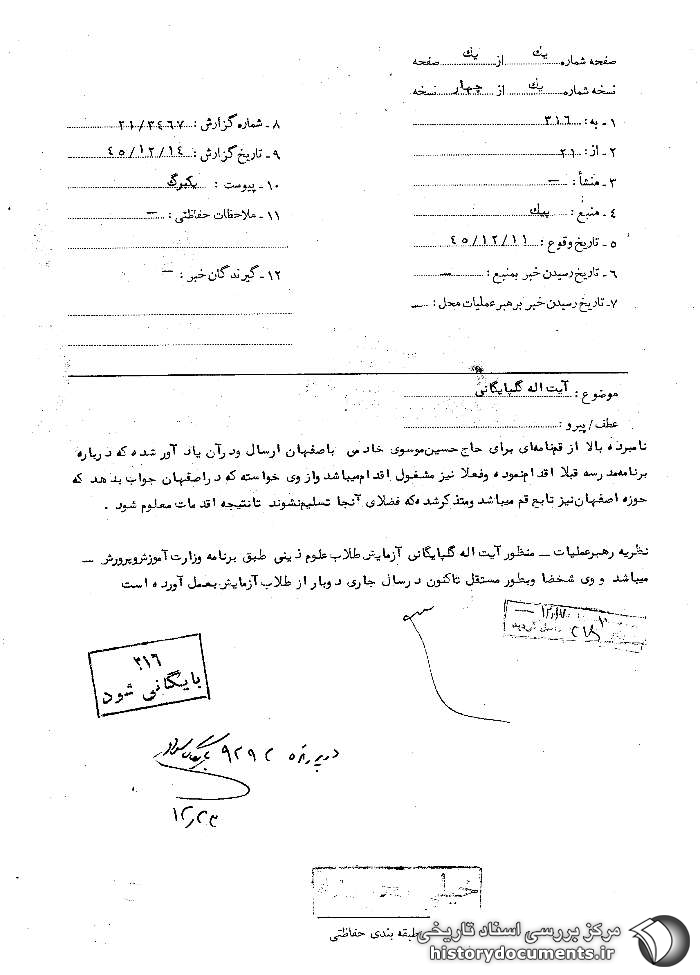 صفحه شماره یک از یک صفحه
نسخه شماره یک از چهار نسخه
۱ـ به: ۳۱۶
۲ـ از: ۲۱
۳ـ منشأ: ـ
۴ـ منبع: پیک
۵ـ تاریخ وقوع: ۴۵/۱۲/۱۱
۶ـ تاریخ رسیدن خبر بمنبع: ـ
۷ـ تاریخ رسیدن خبر برهبر عملیات محل: ـ
۸ـ شماره گزارش: ۲۱/۳۴۶۷
۹ـ تاریخ گزارش: ۴۵/۱۲/۱۴
۱۰ـ پیوست: یکبرگ
۱۱ـ ملاحظات حفاظتی: ـ
۱۲ـ گیرندگان خبر: ـ
موضوع: آیت اله گلپایگانی
عطف/پیرو:
نامبرده بالا از قم نامه‌ای برای حاج حسین موسوی خادمی باصفهان ارسال و در آن یاد آور شده که درباره
برنامه مدرسه قبلا اقدام نموده و فعلا نیز مشغول اقدام میباشد و از وی خواسته که در اصفهان جواب بدهد که
حوزه اصفهان نیز تابع قم میباشد و متذکر شده که فضلای آنجا تسلیم نشوند تا نتیجه اقدمات معلوم شود.
نظریه رهبر عملیات ـ منظور آیت اله گلپایگانی آزمایش طلاب علوم دینی طبق برنامه وزارت آموزش و پرورش ـ
میباشد و وی شخصا و بطور مستقل تاکنون در سال جاری دوبار از طلاب آزمایش بعمل آورده است
۳۱۶
بایگانی شود
در پرونده ۹۲۹۲
۱۲/۲۳
خیلی محرمانه
طبقه بندی حفاظتی
مرکز بررسی اسناد تاریخی
historydocuments.ir